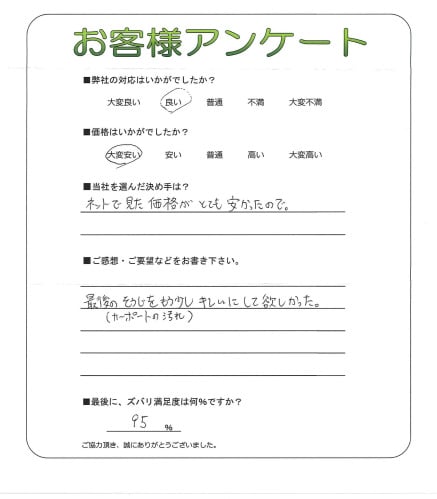 お客様アンケート
■弊社の対応はいかがでしたか?
大変良い 良い 普通 不満 大変不満
■価格はいかがでしたか?
大変安い 安い 普通 高い 大変高い
■当社を選んだ決め手は?
ネットで見た価格がとても安かったので。
■ご感想・ご要望などをお書き下さい。
最後のそうじをもう少しキレイにして欲しかった。
(カーポートの汚れ)
■最後に、ズバリ満足度は何%ですか?
95 %
ご協力頂き、誠にありがとうございました。